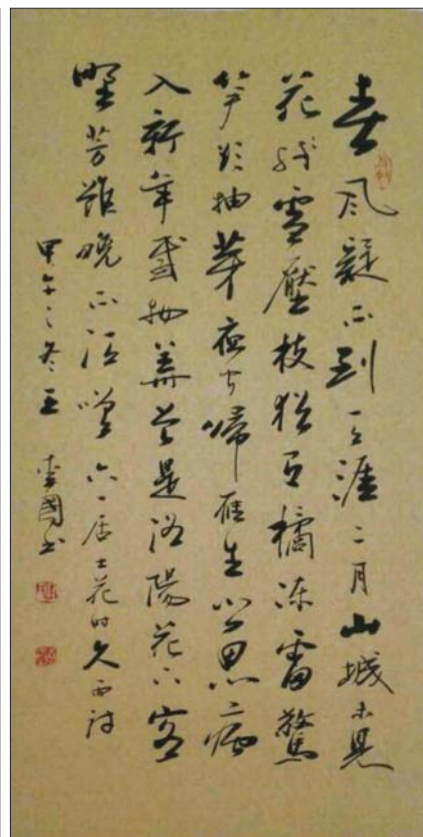 春風疑不到天涯二月山城未見
花殘雪壓枝猶有橘凍雷驚
笋欲抽芽夜聞啼雁生鄉思病
入新年感物華曾是洛陽花下客
野芳雖晚不須嗟 六一居士花时久雨詩
甲午之冬王國书